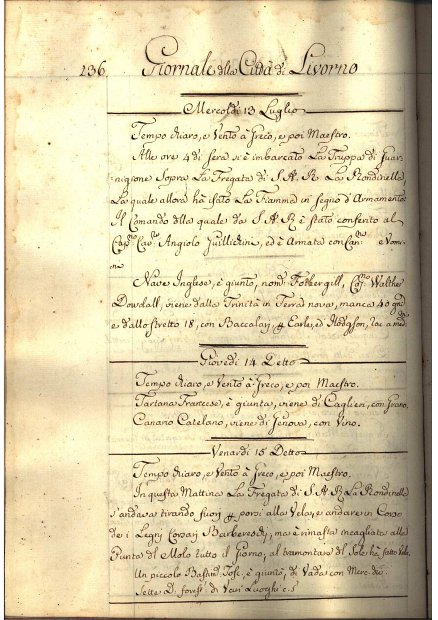 236 Giornale della Città di Livorno
Mercoldì 13 Luglio
Tempo chiaro, e Vento à Greco, e poi Maestro.
Alle ore 4 di sera si è imbarcato La Truppa di Guar-
nigione Sopra La Fregata di S. A. R. La Rondinella
La quale allora hà fatto La Fiamma in segno d'Armamento
Il Comando della quale da S. A. R. è stato conferito al
Capno Cavre Angiolo ed è Armata con Canni e Vom-
ni
Nave Inglese, è giunta, nomta Fothergill, Capno Walther
Dowdall, viene dalla Trinità in Terra nova, manca 40 gni
e dallo stretto 18, con Baccalari, Earle, ed Hodgson,
Giovedì 14 Detto
Tempo chiaro, e Vento à Greco, e poi Maestro.
Tartana Francese, è giunta, viene di Caglieri, con Grano.
Canario Catelano, viene di Genova, con Vino.
Venardì 15 Detto
Tempo chiaro, e Vento à Greco, e poi Maestro.
In questa Mattina La Fregata di S. A. R. La Rondinella
s'andava tirando fuori porsi alla Vela, e andare in Corso
de i Legni Corsari Barbereschi, ma è rimasta incagliata alla
Punta del Molo tutto il Giorno, al tramontare del Sole hà fatto Vela.
Un piccolo Bastimto Tosc. è giunto, di Vada con Merc. div.
Sette D. forest. di Vari Luoghi c. s.